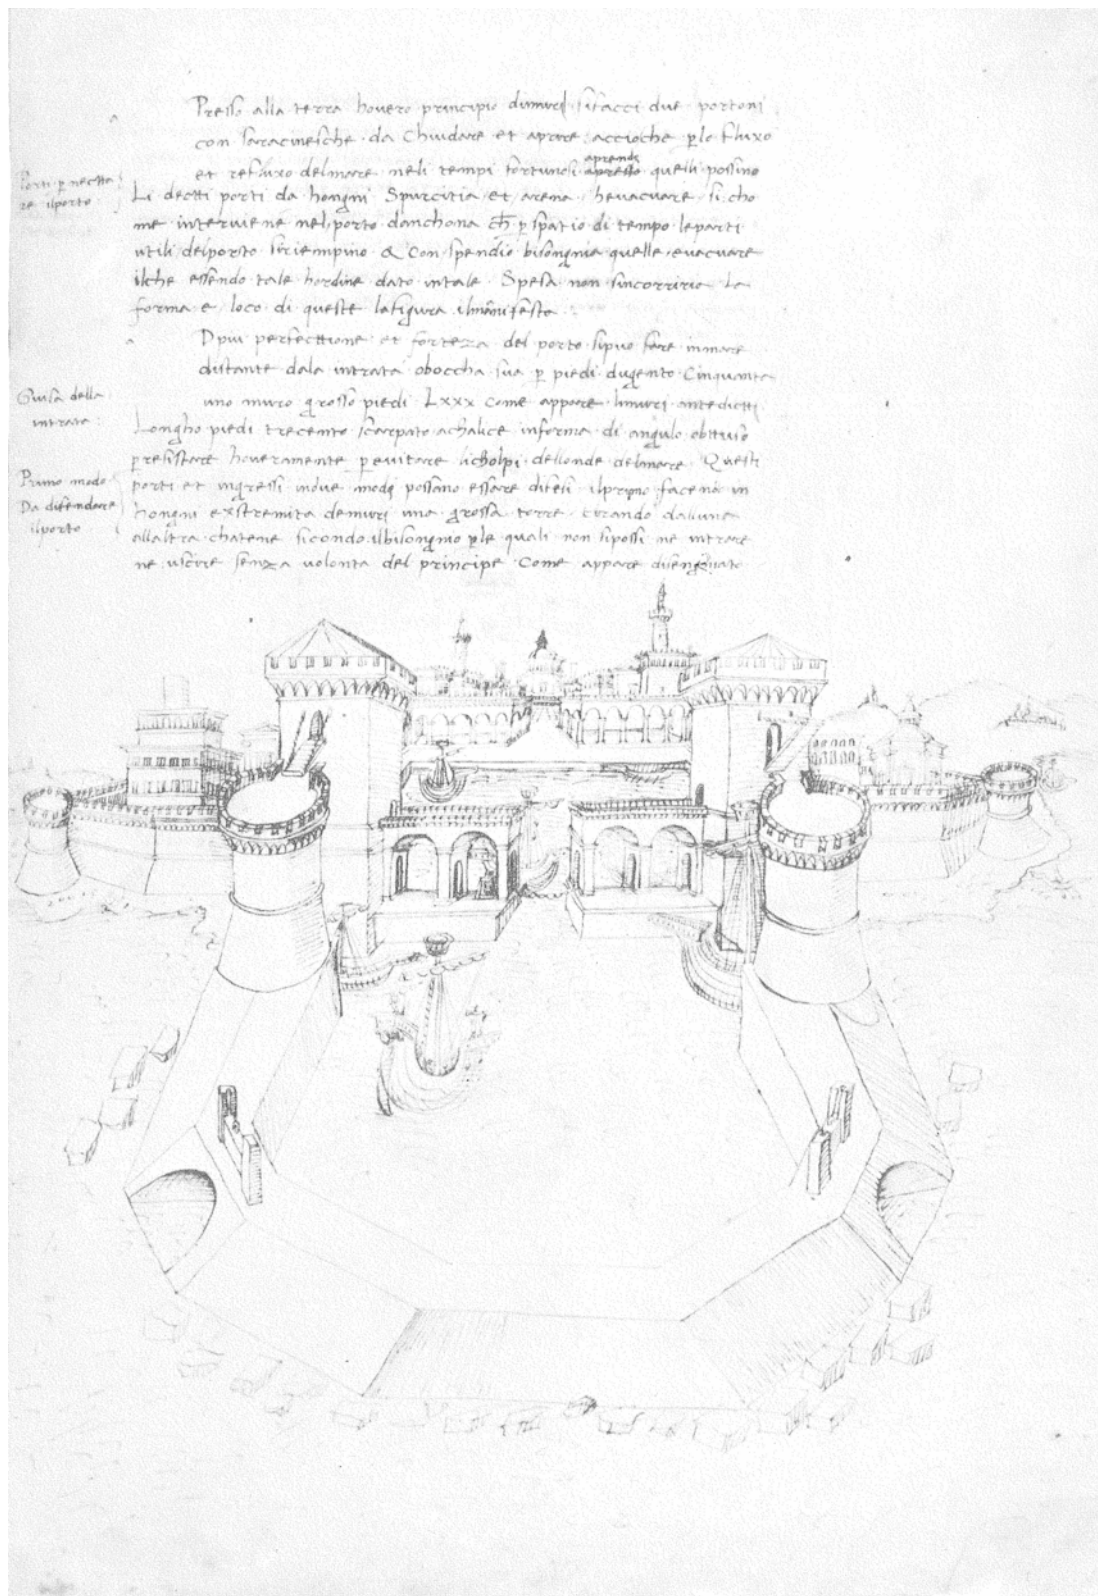 Presso alla terra hovero principio dimuri sifacci due portoni
con saracinesche da chiudare et aprire accioche p̱ lo fluxo
et refluxo del mare neli tempi fortunosi apresso aprendo quelli possino
Porti p̱ necttare ilporto
Li dectti porti da hongni Spurcitia et arena hevacuare si cho
me interviene nel porto danchona ch̄ p̱ spatio di tempo le parti
utili delporto siriempino & con spendio bisongnia quelle evacuare
ilche essendo tale hordine dato intale Spesa non sincorriria La
forma e loco di queste lafigura il manifesta
Dpiu perfecttione et forteza del porto sipuo fare inmare
distante dala intrata oboccha sua p̱ piedi dugento Cinquanta
uno muro grosso piedi Lxxx come appare limuri antedictti
Guisa della
intrata
Longho piedi trecento scarpato achalice informa di angulo obttuso
p̱ resistare hoveramente p̱ evitare licholpi dellonde delmare Questi
Primo modo
Da difendare
ilporto
porti et ingressi indue modi possano essare difesi ilprimo facena in
hongni exstremita demuri una grossa torre tirando daluna
allaltra chatene sicondo ilbisongnio p̱ le quali non sipossi ne intrare
ne uscire senza volonta del principe Come appare disengniato